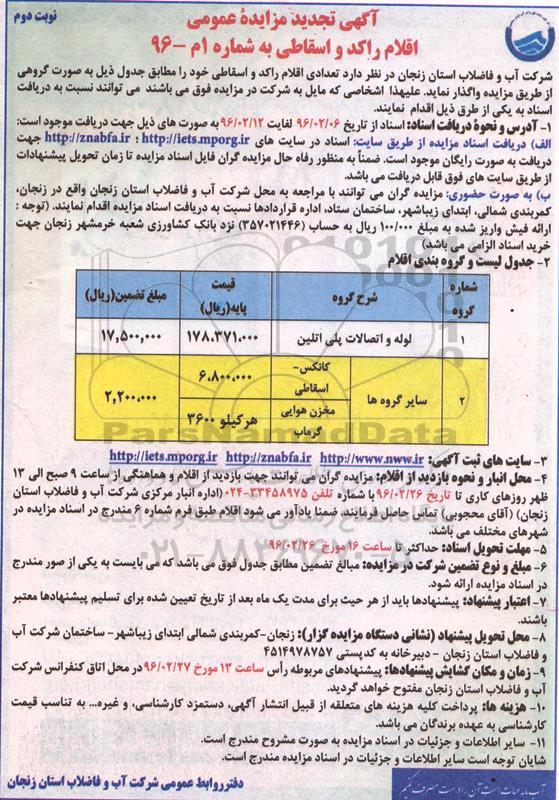 آگهی تجدید مزایدهٔ عمومی
نوبت دوم
اقلام راکد و اسقاطی به شماره ۱م -۹۶
شرکت آب و فاضلاب استان زنجان در نظر دارد تعدادی اقلام راکد و اسقاطی خود را مطابق جدول ذیل به صورت گروهی
از طریق مزایده واگذار نماید. علیهذا اشخاصی که مایل به شرکت در مزایده فوق می باشند می توانند نسبت به دریافت
اسناد به یکی از طرق ذیل اقدام نمایند.
۱- آدرس و نحوه دریافت اسناد: اسناد از تاریخ ۹۶/۰۲/۰۶ لغایت ۹۶/۰۲/۱۲ به صورت های ذیل جهت دریافت موجود است:
الف) دریافت اسناد مزایده از طریق سایت: اسناد در سایت های http://iets.mporg.ir ؛ http://znabfa.ir جهت
دریافت به صورت رایگان موجود است. ضمناً به منظور رفاه حال مزایده گران فایل اسناد مزایده تا زمان تحویل پیشنهادات
از طریق سایت های فوق قابل دریافت می باشد.
ب) به صورت حضوری: مزایده گران می توانند با مراجعه به محل شرکت آب و فاضلاب استان زنجان واقع در زنجان،
کمربندی شمالی، ابتدای زیباشهر، ساختمان ستاد، اداره قراردادها نسبت به دریافت اسناد مزایده اقدام نمایند. (توجه :
ارائه فیش واریز شده به مبلغ ۱۰۰/۰۰۰ ریال به حساب (۳۵۷۰۲۱۴۴۶) نزد بانک کشاورزی شعبه خرمشهر زنجان جهت
خرید اسناد الزامی می باشد)
۲- جدول لیست و گروه بندی اقلام
شماره گروه | شرح گروه | قیمت پایه(ریال) | مبلغ تضمین(ریال)
۱ | لوله و اتصالات پلی اتلین | ۱۷۸،۳۷۱،۰۰۰ | ۱۷،۵۰۰,۰۰۰
۲ | سایر گروه ها | کانکس-اسقاطی | ۶،۸۰۰،۰۰۰ | ۲,۲۰۰,۰۰۰
مخزن هوایی گرماب | هرکیلو ۳۶۰۰
ParsNamadData
۳- سایت های ثبت آگهی: http://iets.mporg.ir http://znabfa.ir http://www.nww.ir
۴- محل انبار و نحوه بازدید از اقلام: مزایده گران می توانند جهت بازدید از اقلام و هماهنگی از ساعت ۹ صبح الی ۱۳
ظهر روزهای کاری تا تاریخ ۹۶/۰۲/۲۶ با شماره تلفن ۳۳۴۵۸۹۷۵-۰۲۴ (اداره انبار مرکزی شرکت آب و فاضلاب استان
زنجان) (آقای محجوبی) تماس حاصل فرمایند. ضمنا یادآور می شود اقلام طبق فرم شماره ۶ مندرج در اسناد مزایده در
شهرهای مختلف می باشد.
۵- مهلت تحویل اسناد: حداکثر تا ساعت ۱۶ مورخ ۹۶/۰۲/۲۶.
۶- مبلغ و نوع تضمین شرکت در مزایده: مبالغ تضمین مطابق جدول فوق می باشد که می بایست به یکی از صور مندرج
در اسناد مزایده ارائه شود.
۷- اعتبار پیشنهاد: پیشنهادها باید از هر حیث برای مدت یک ماه بعد از تاریخ تعیین شده برای تسلیم پیشنهادها معتبر
باشند.
۸- محل تحویل پیشنهاد (نشانی دستگاه مزایده گزار): زنجان-کمربندی شمالی ابتدای زیباشهر- ساختمان شرکت آب
و فاضلاب استان زنجان - دبیرخانه به کدپستی ۴۵۱۴۹۷۸۷۵۷
۹- زمان و مکان گشایش پیشنهادها: پیشنهادهای مربوطه رأس ساعت ۱۳ مورخ ۹۶/۰۲/۲۷ در محل اتاق کنفرانس شرکت
آب و فاضلاب استان زنجان مفتوح خواهد گردید.
۱۰- هزینه ها: پرداخت کلیه هزینه های متعلقه از قبیل انتشار آگهی، دستمزد کارشناسی، و غیره... به تناسب قیمت
کارشناسی به عهده برندگان می باشد.
۱۱- سایر اطلاعات و جزئیات در اسناد مزایده به صورت مشروح مندرج است.
شایان توجه است سایر اطلاعات و جزئیات در اسناد مزایده مندرج است.
دفتر روابط عمومی شرکت آب و فاضلاب استان زنجان
آب مایه حیات است آن را درست مصرف کنیم